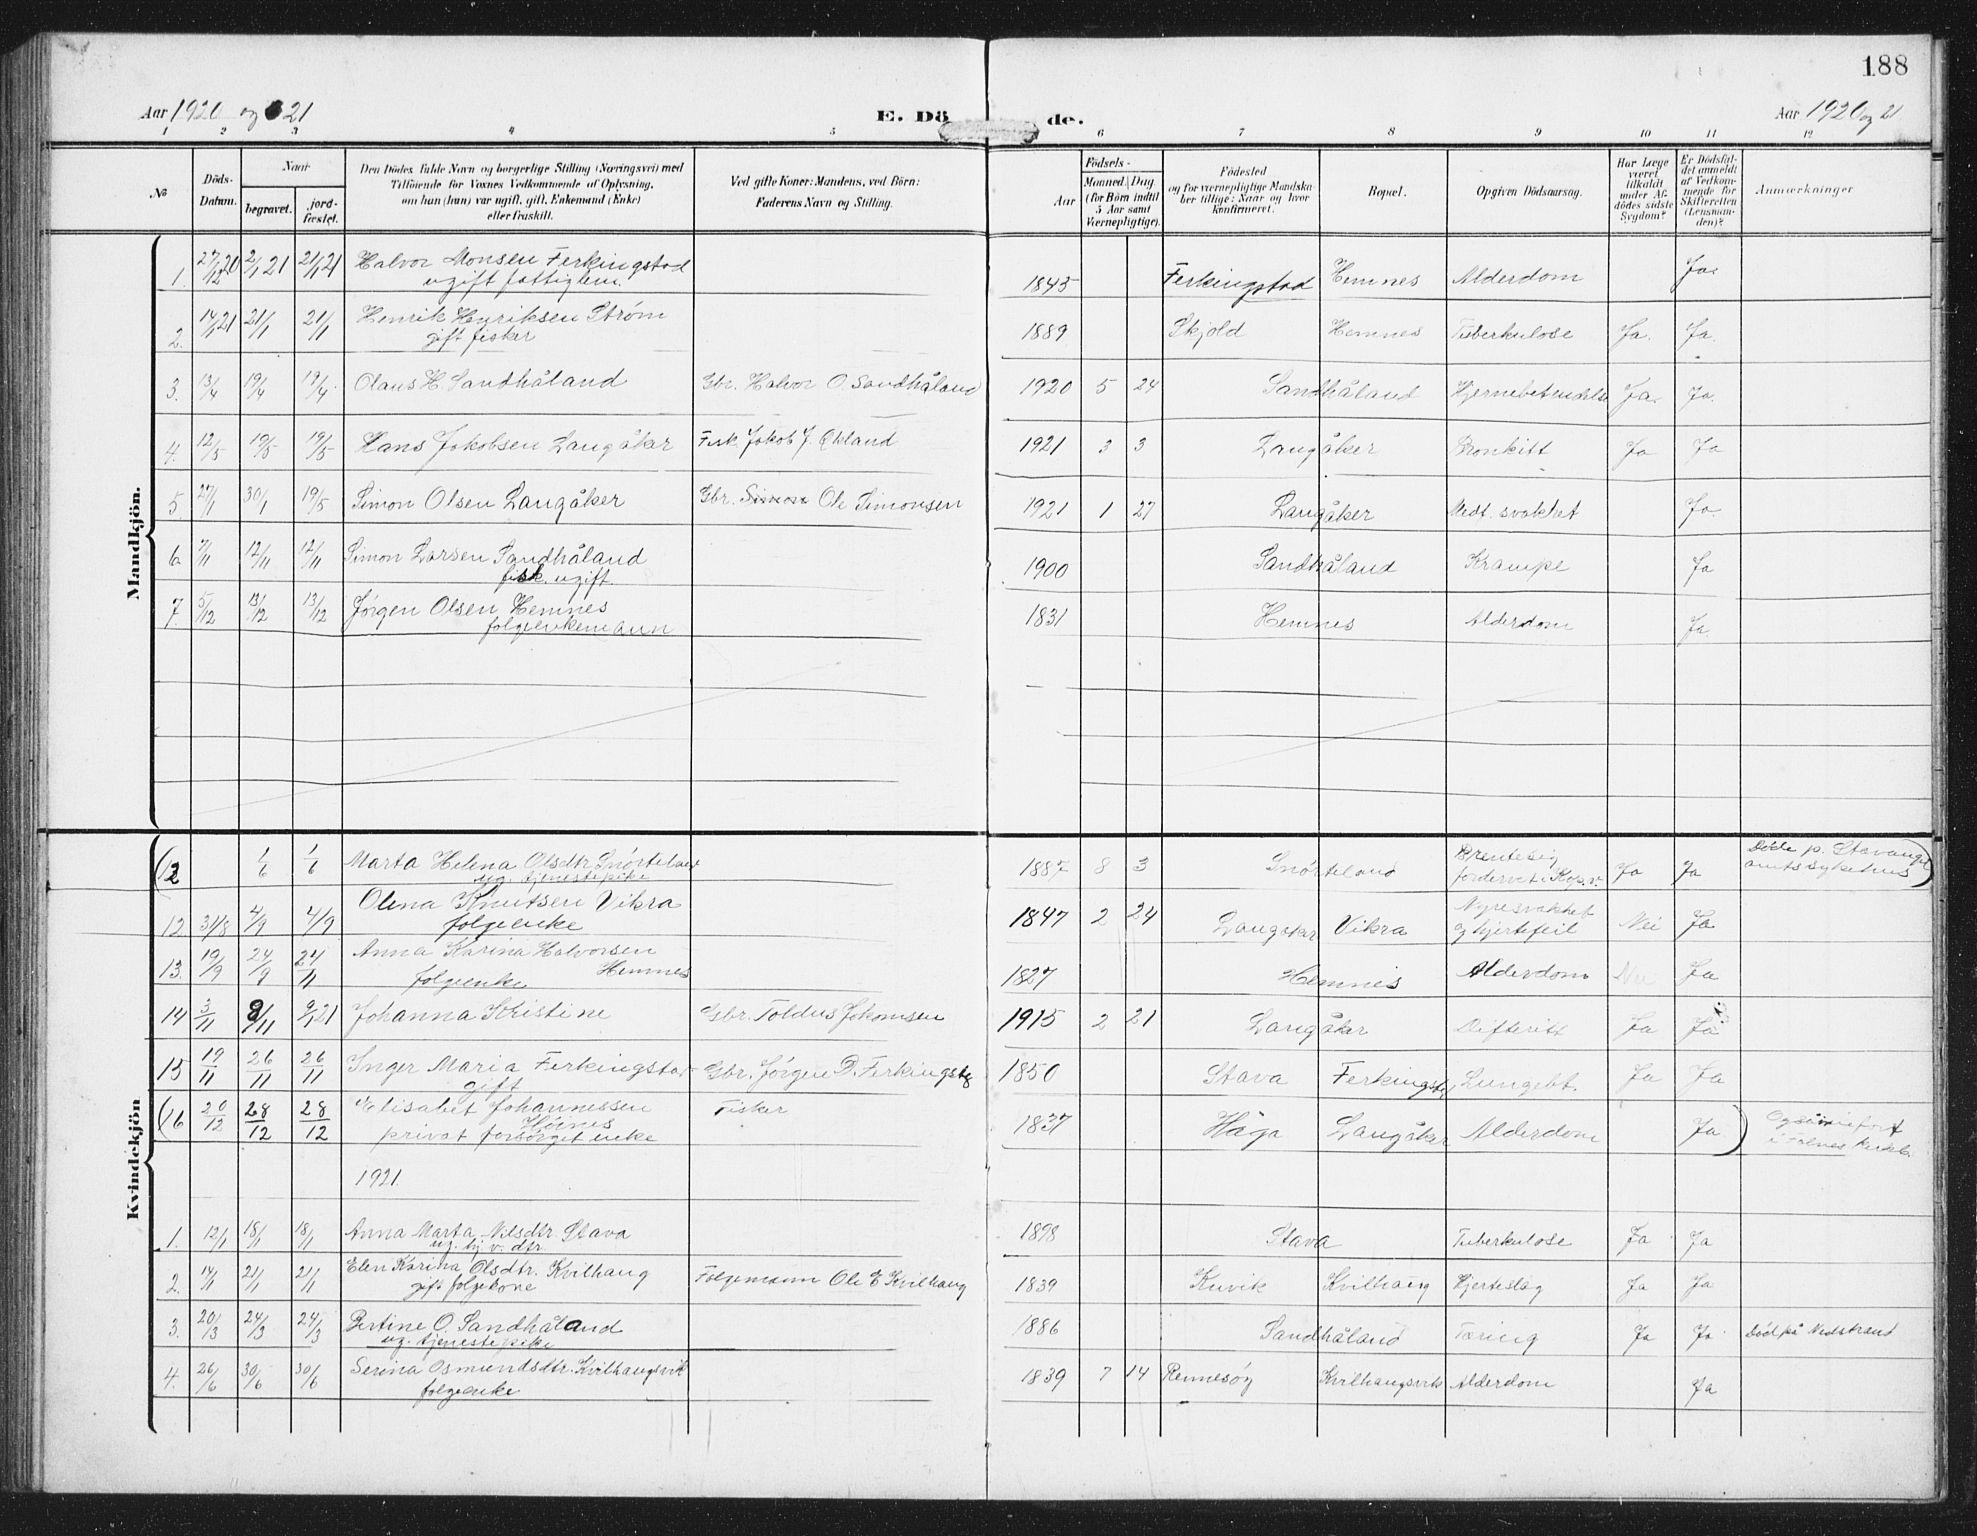 188
Aar 1920 og 21
E. Dö de.
Aar 1920 og 21
1 2 3 4 5 6 7 8 9 10 11 12
No
Döds-Datum.
Naar
begravet.
jord-fæstet.
Den Dödes fulde Navn og borgerlige Stilling (Næringsvei) med
Tilföiende for Voxnes Vedkommende af Oplysning,
om han (hun) var ugift, gift, Enkemand (Enke)
eller fraskilt.
Ved gifte Koner: Mandens, ved Börn:
Faderens Navn og Stilling.
Födsels-
Aar
Maaned. Dag
(for Börn indtil
5 Aar samt
Værnepligtige).
Födested
og for værnepligtige Mandska-
ber tillige: Naar og hvor
konfirmeret.
Bopæl.
Opgiven Dödsaarsag.
Har Læge
været
tilkaldt
under Af-
dödes sidste
Sygdom?
Er Dödsfal-
det anmeldt
af Vedkom-
mende for
Skifteretten
(Lensman-
den)?
Anmærkninger
Mandkjön.
1. 27/12 20 2/1 21 21/1 21 Halvor Monsen Ferkingstad 1843 Ferkingstad Hemnes Alderdom Ja
ugift fattiglem.
2. 14/1 21 21/1 21/1 Henrik Henriksen Strøm 1889 Skjold Hemnes Tuberkulose Ja. Ja.
gift fisker
3. 13/4 19/4 19/4 Olaus H. Sandhåland Gbr. Halvor O. Sandhåland 1920 5 24 Sandhåland Hjernebetendelse Ja. Ja.
4. 12/5 19/5 19/5 Hans Jakobsen Langåker Fisk. Jakob J. Økland 1921 3 3 Langåker Bronkitt Ja Ja
5. 27/1 30/1 19/5 Simon Olsen Langåker Gbr. Simon Ole Simonsen 1921 1 27 Langåker Medf. svakhet Ja.
6 7/11 12/11 12/11 Simon Larsen Sandhåland 1900 Sandhåland Krampe Ja
fisk. ugift.
7. 5/12 13/12 13/12 Jørgen Olsen Hemnes 1831 Hemnes Alderdom Ja
folgeenkemann
Kvindekjön
(12 1/6 1/6 Marta Helena Olsdtr Snørteland 1887 8 3 Snørteland Brentesig Ja Ja Døde p. Stavanger
ug. tjenestepike fordervet i Kop.v. amtssykehus)
12 31/8 4/9 4/9 Olena Knutsen Vikra 1847 2 24 Langåker Vikra Nyresvakhet Nei Ja
folgeenke og hjertefeil
13. 19/9 24/9 24/11 Anna Karina Halvorsen 1827 Hemnes Alderdom Nei Ja
folgeenke Hemnes
14 3/11 9/11 9/1 21 Johanna Kristine Gbr. Toldus Jokomsen 1915 2 21 Langåker Difteritt Ja Ja
15 19/11 26/11 26/11 Inger Maria Ferkingstad Gbr. Jørgen D. Ferkingstd 1850 Stava Ferkingstd Lungebt. Ja Ja
gift
(16 20/12 28/12 28/12 Elisabet Johannessen Fisker 1837 Håga Langåker Alderdom Ja)
Høines
privat forsørget enke
1921
1. 12/1 18/1 18/1 Anna Marta Nilsdtr. Stava 1898 Stava Tuberkulose Ja Ja
ug. hj. v. dtr.
2. 14/1 21/1 21/1 Elen Karina Olsdtr. Kvilhaug Folgemann Ole E Kvilhaug 1839 Kuvik Kvilhaug Hjerteslag Ja Ja
gift folgekone
3. 20/3 24/3 24/3 Bertine O. Sandhåland 1886 Sandhåland Tæring Ja Ja Død på Nedstrand
ug. tjenestepike
4. 26/6 30/6 30/6 Serina Osmundsdtr. Kvilhaugsvik 1839 7 14 Rennesøy Kvilhaugsvik Alderdom Ja
folgeenke